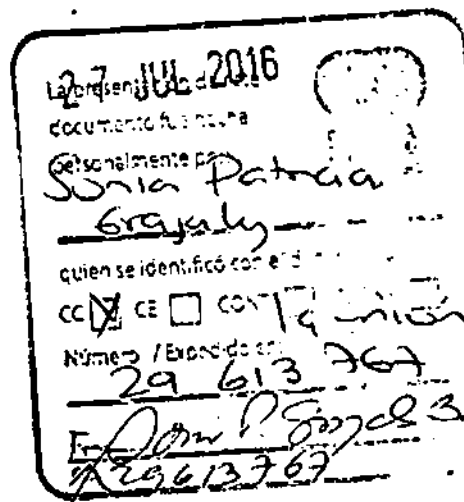 27 JUL 2016
La presentación de este
documento fue hecha
personalmente por
Sonia Patricia
Grajales
quien se identificó con el
CC X CE
La Unión
Número / Expedido en:
29 613 767
29613767